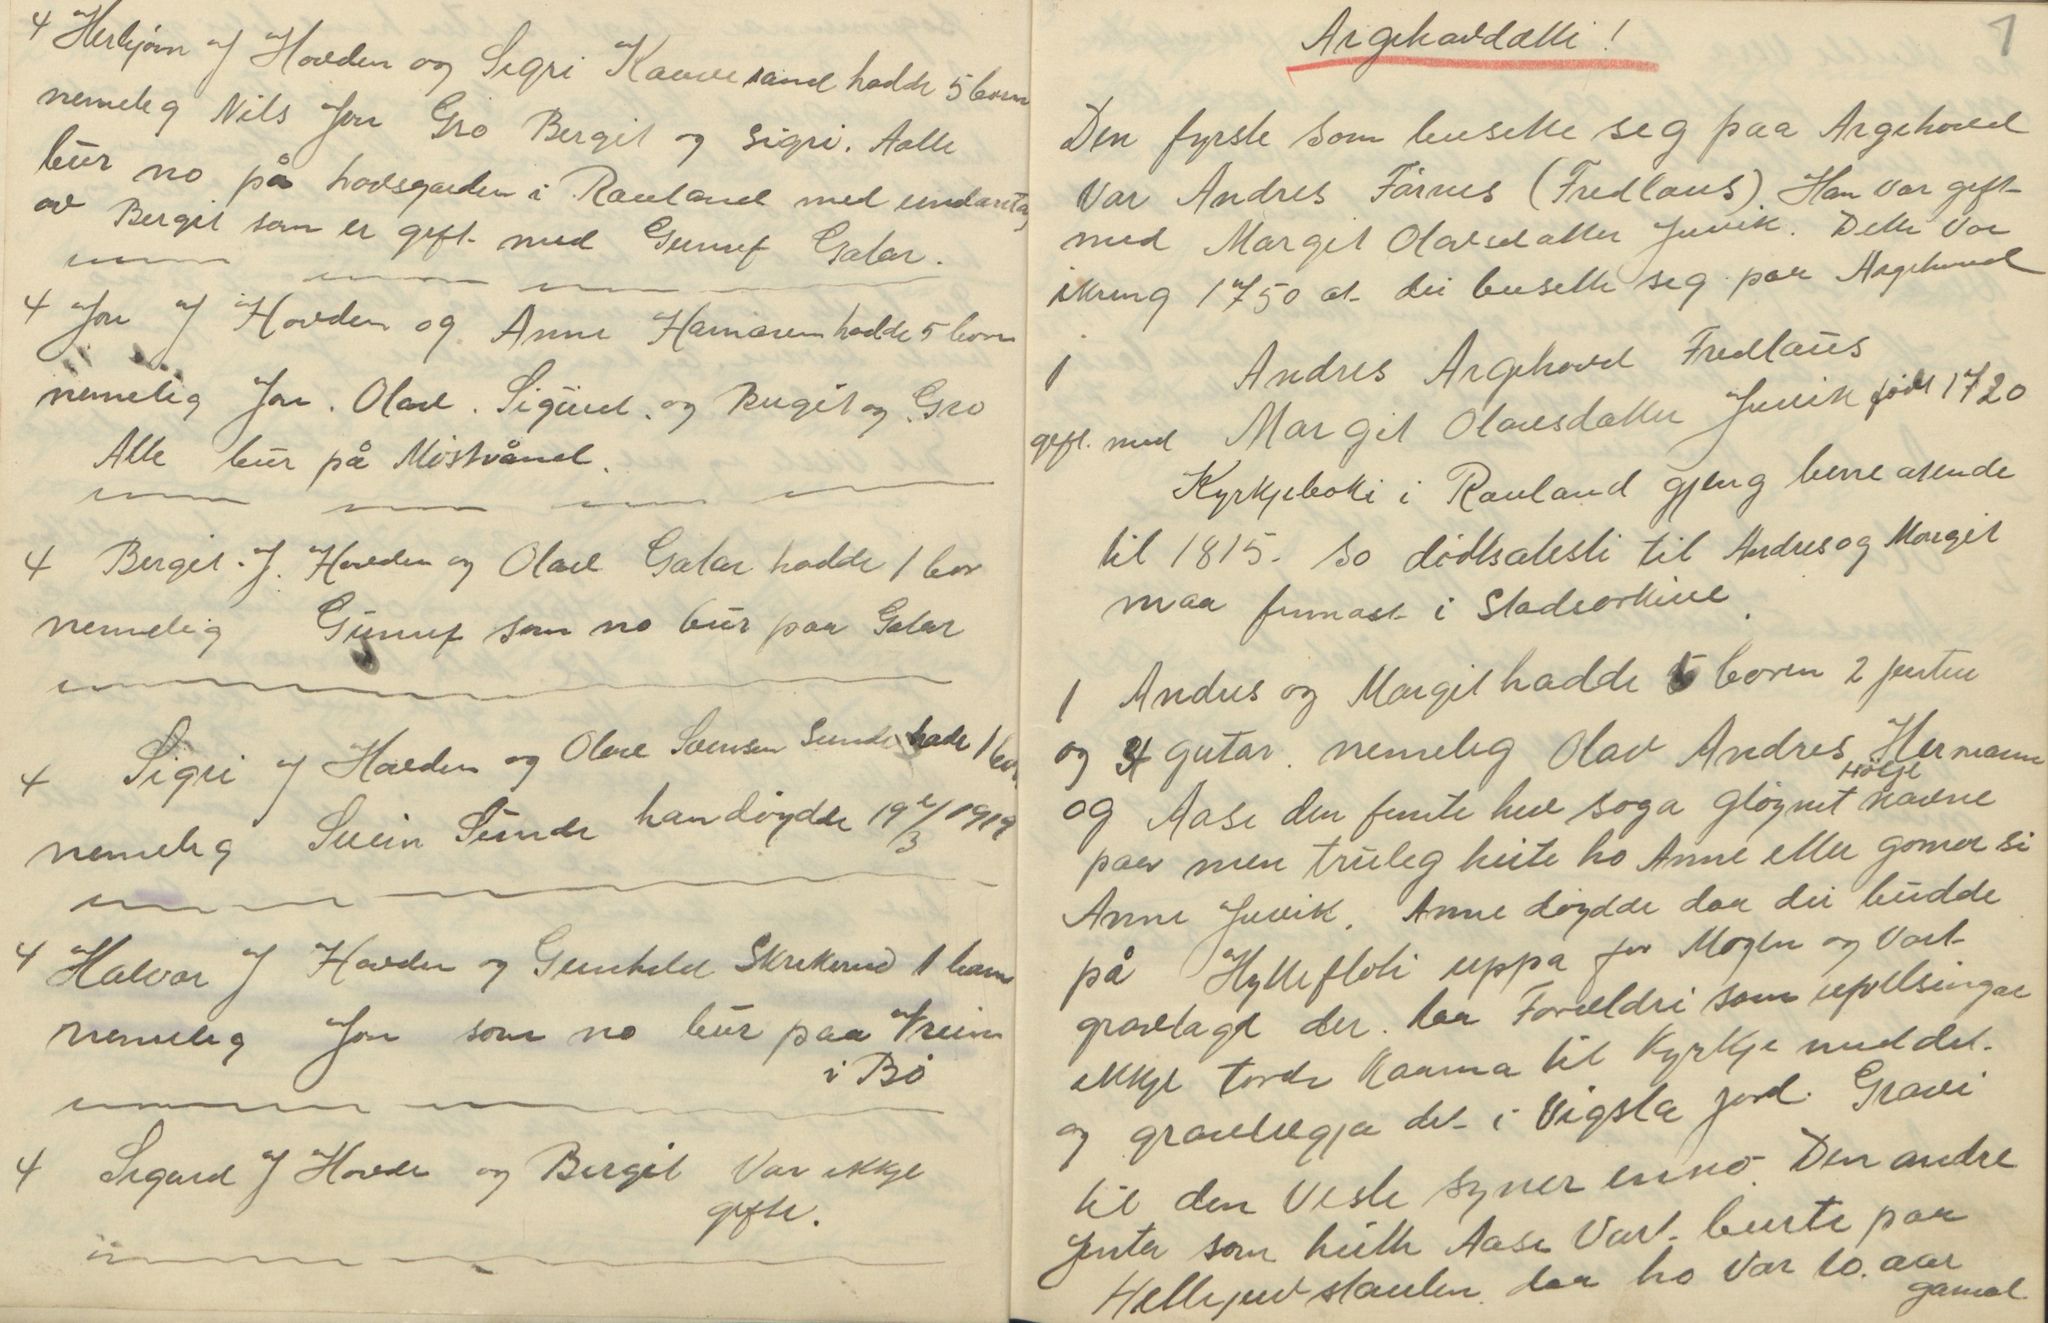 4 Herbjørn J Hovden og Sigri Kaavesand hadde 5 born
nemeleg Nils Jon Gro Bergit og Sigri. Aalle
bur no på hovsgarden i Rauland med undantag
av Bergit som er gift med Gunuf Galar.
4 Jon J Hovden og Anne Hamaren hadde 5 born
nemelig Jon. Olav. Sigurd. og Bergit og Gro
Alle bur på Møsstrånd.
4 Bergit. J. Hovden og Olav Galar hadde 1 bor
nemelig Gunuf som no bur paa Galar
4 Sigri J Hovden og Olav Sveinsen Sunde hade 1 bor
nemeleg Svein Sunde han døydde 19 2/3 1919
4 Halvor J Hovden og Gunhild Skrikerud 1 barn
nemeleg Jon som no bur paa Vreim
i Bø
4 Sigurd J Hovde og Bergit Var ikkje
gifte.
1
Argehovdætti!
Den fyrste som busette seg paa Argehovd
Var Andres Fårnes (Fredlaus). Han var gift
med Margit Olavsdatter Juvik. Dette Var
ikring 1750 at dei busette seg paa Argehovd
1 Andres Argehovd Fredlaus
gift. med Margit Olavsdatter Juvik født 1720
Kyrkjeboki i Rauland gjeng berre atende
til 1815. So dødsatesti til Andres og Margit
maa finnast i Stadsarkive.
1 Andres og Margit hadde born 2 jentur
og 4 gutar. nemeleg Olav Andres Hermann
Hølje
og Aase den femte hev soga gløymt navne
paa men truleg heite ho Anne etter gomor si
Anne Juvik. Anne døydde daa dei budde
på Hyllefloti uppa for Mogen og Vart
gravlagd der. daa Foreldri som upvelsingar
ikkje torde kaama til Kyrkje med det.
og gravleggja det i Vigsla jord. Gravi
til den Vesle syner enno. Den andre
Jenta som heitte Aase Vart burte paa
Hellejuvstaulen daa ho Var 10. aar
gamal